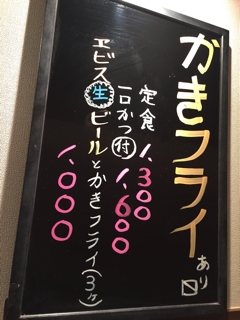 かきフライあり〼
定食 1,300
一口かつ付 1,600
ヱビス生ビールとかきフライ(3ヶ)
1,000